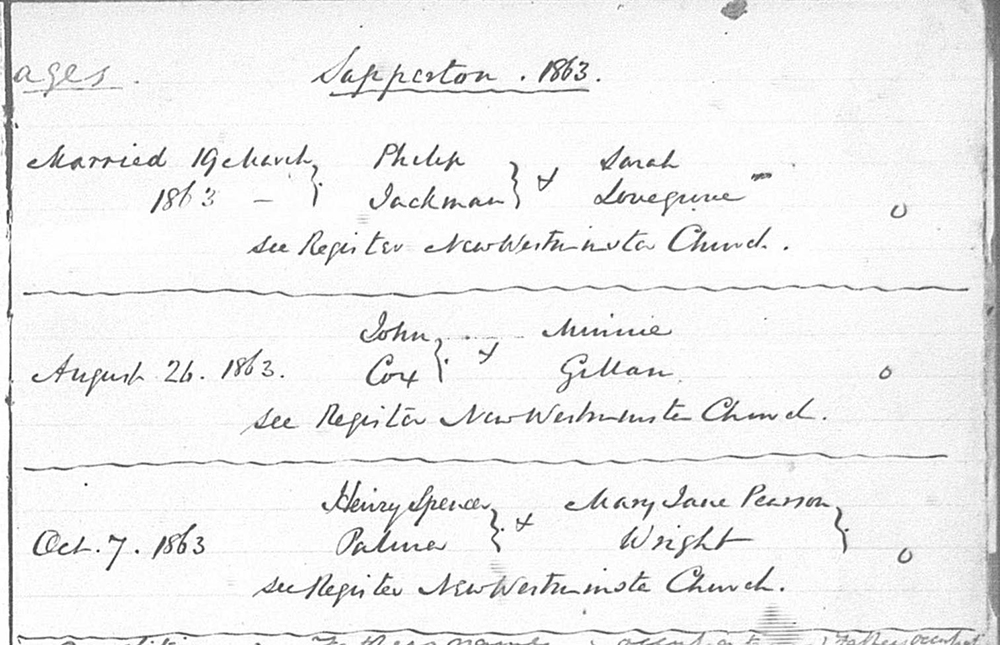 ages.
Sapperton. 1863.
Married 19 March } Philip } & Sarah
1863 - Jackman Lovegrove
see Register New Westminster Church.
John } & Minnie
August 26. 1863. Cox Gillan
see Register New Westminster Church.
Henry Spencer } & Mary Jane Pearson }
Oct. 7. 1863 Palmer Wright
see Register New Westminster Church.